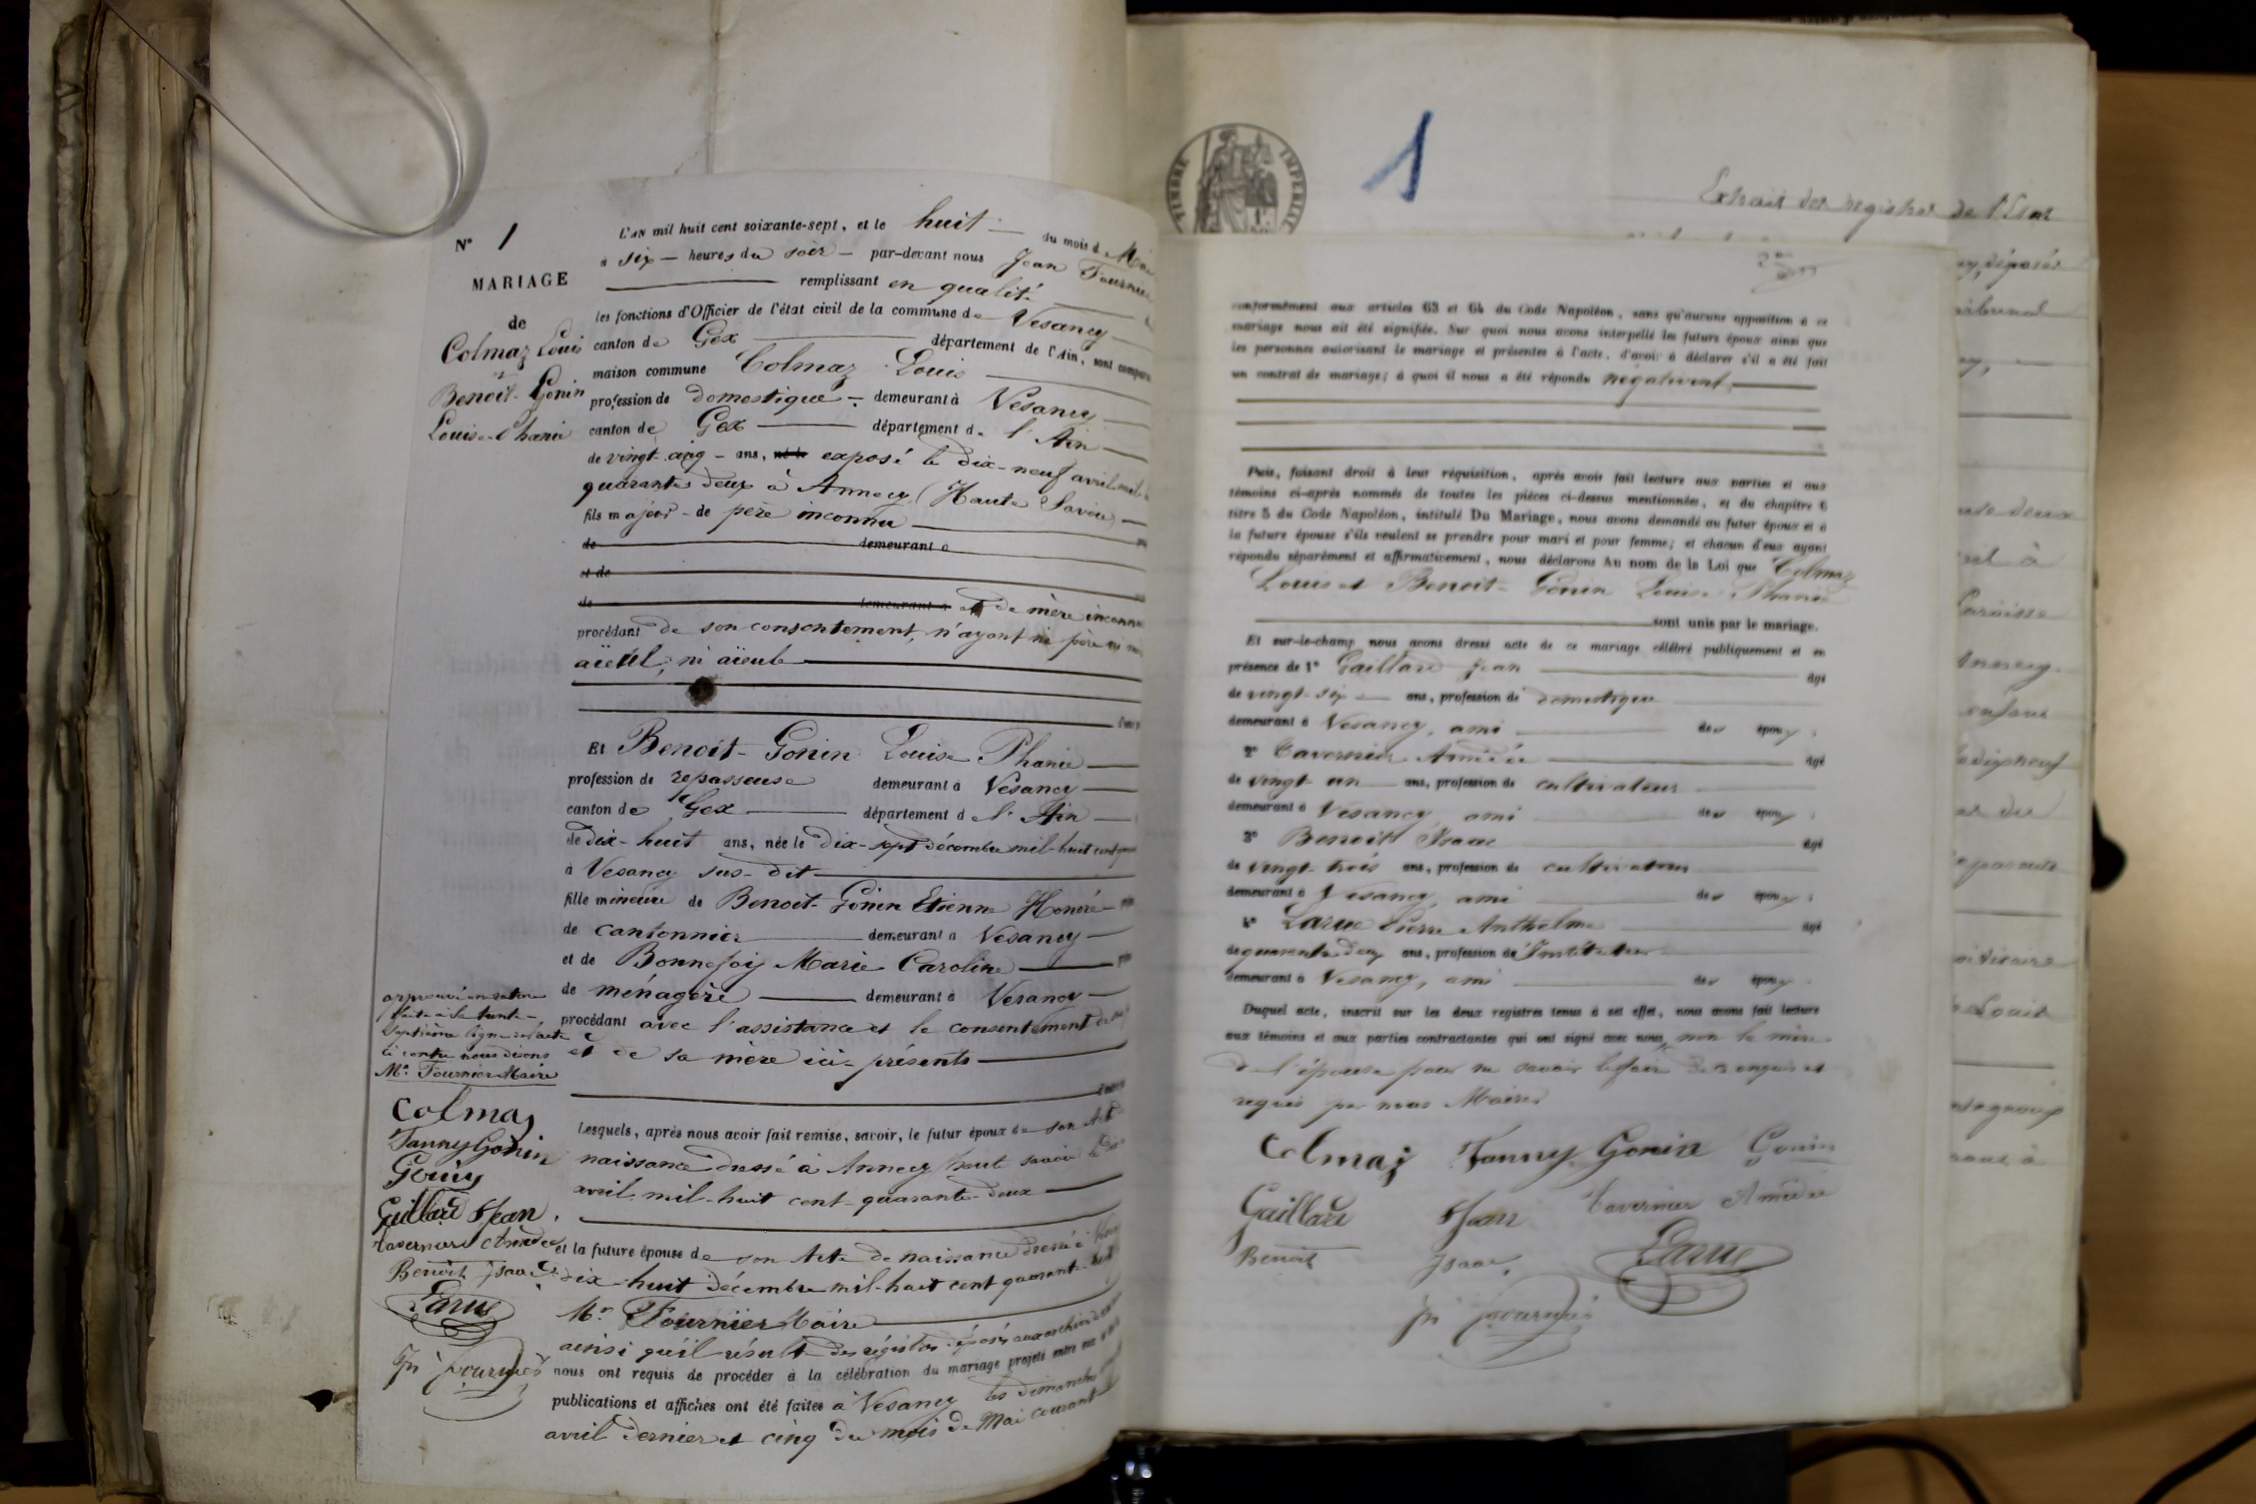 N° 1
MARIAGE
de
Colmaz Louis
et
Benoit-Gonin
Louise Phanie
L'AN mil huit cent soixante-sept, et le huit du mois de Mai
à six heures du soir par-devant nous Jean Fournier
remplissant en qualité
les fonctions d'Officier de l'état civil de la commune de Vesancy
canton de Gex département de l'Ain, sont comparus
maison commune Colmaz Louis
profession de domestique demeurant à Vesancy
canton de Gex département de l'Ain
de vingt-cinq ans, né le exposé le dix-neuf avril mil
quarante deux à Annecy (Haute Savoie)
fils majeur de père inconnu
de demeurant à
et de
de demeurant à et de mère inconnue
procédant de son consentement, n'ayant ni père ni
aïeul, ni aïeule
Et Benoit-Gonin Louise Phanie
profession de repasseuse demeurant à Vesancy
canton de Gex département de l'Ain
de dix-huit ans, née le dix-sept décembre mil-huit cent
à Vesancy sus-dit
fille mineure de Benoit-Gonin Etienne Honoré
de cantonnier demeurant à Vesancy
et de Bonnefoy Marie Caroline
de ménagère demeurant à Vesancy
procédant avec l'assistance et le consentement de
et de sa mère ici présents
Lesquels, après nous avoir fait remise, savoir, le futur époux de son Acte
naissance dressé à Annecy haute savoie le
avril mil-huit cent-quarante-deux
et la future épouse de son Acte de naissance dressé à
dix-huit décembre mil-huit cent quarante-huit
Mr Fournier Maire
ainsi qu'il résulte des régistres déposés aux archives
nous ont requis de procéder à la célébration du mariage projeté entre eux
publications et affiches ont été faites à Vesancy les dimanches
avril dernier et cinq du mois de Mai courant
la trente-
septième ligne
ci contre nous disons
Mr Fournier Maire
Colmaz
Fanny Gonin
Gonin
Gaillard Jean
Tavernier Amédée
Benoit Isaac
Larue
Jn Fournier
TIMBRE IMPERIAL
1
Extrait des registres de l'Etat
conformément aux articles 63 et 64 du Code Napoléon, sans qu'aucune opposition à ce
mariage nous ait été signifiée. Sur quoi nous avons interpellé les futurs époux ainsi que
les personnes autorisant le mariage et présentes à l'acte, d'avoir à déclarer s'il a été fait
un contrat de mariage; à quoi il nous a été répondu négativement
Puis, faisant droit à leur réquisition, après avoir fait lecture aux parties et aux
témoins ci-après nommés de toutes les pièces ci-dessus mentionnées, et du chapitre 6
titre 5 du Code Napoléon, intitulé Du Mariage, nous avons demandé au futur époux et à
la future épouse s'ils veulent se prendre pour mari et pour femme; et chacun d'eux ayant
répondu séparément et affirmativement, nous déclarons Au nom de la Loi que Colmaz
Louis et Benoit-Gonin Louise Phanie
sont unis par le mariage.
Et sur-le-champ nous avons dressé acte de ce mariage célébré publiquement et en
présence de 1° Gaillard Jean âgé
de vingt-six ans, profession de domestique
demeurant à Vesancy, ami des époux;
2° Tavernier Amédée âgé
de vingt un ans, profession de cultivateur
demeurant à Vesancy, ami des époux;
3° Benoit Isaac âgé
de vingt-trois ans, profession de cultivateur
demeurant à Vesancy, ami des époux;
4° Larue Pierre Anthelme âgé
de quarante deux ans, profession d'Instituteur
demeurant à Vesancy, ami des époux.
Duquel acte, inscrit sur les deux registres tenus à cet effet, nous avons fait lecture
aux témoins et aux parties contractantes qui ont signé avec nous, non la mère
de l'épouse pour ne savoir le faire de ce enquis et
requis par nous Maire
Colmaz Fanny Gonin Gonin
Gaillard Jean Tavernier Amédée
Benoit Isaac Larue
Jn Fournier